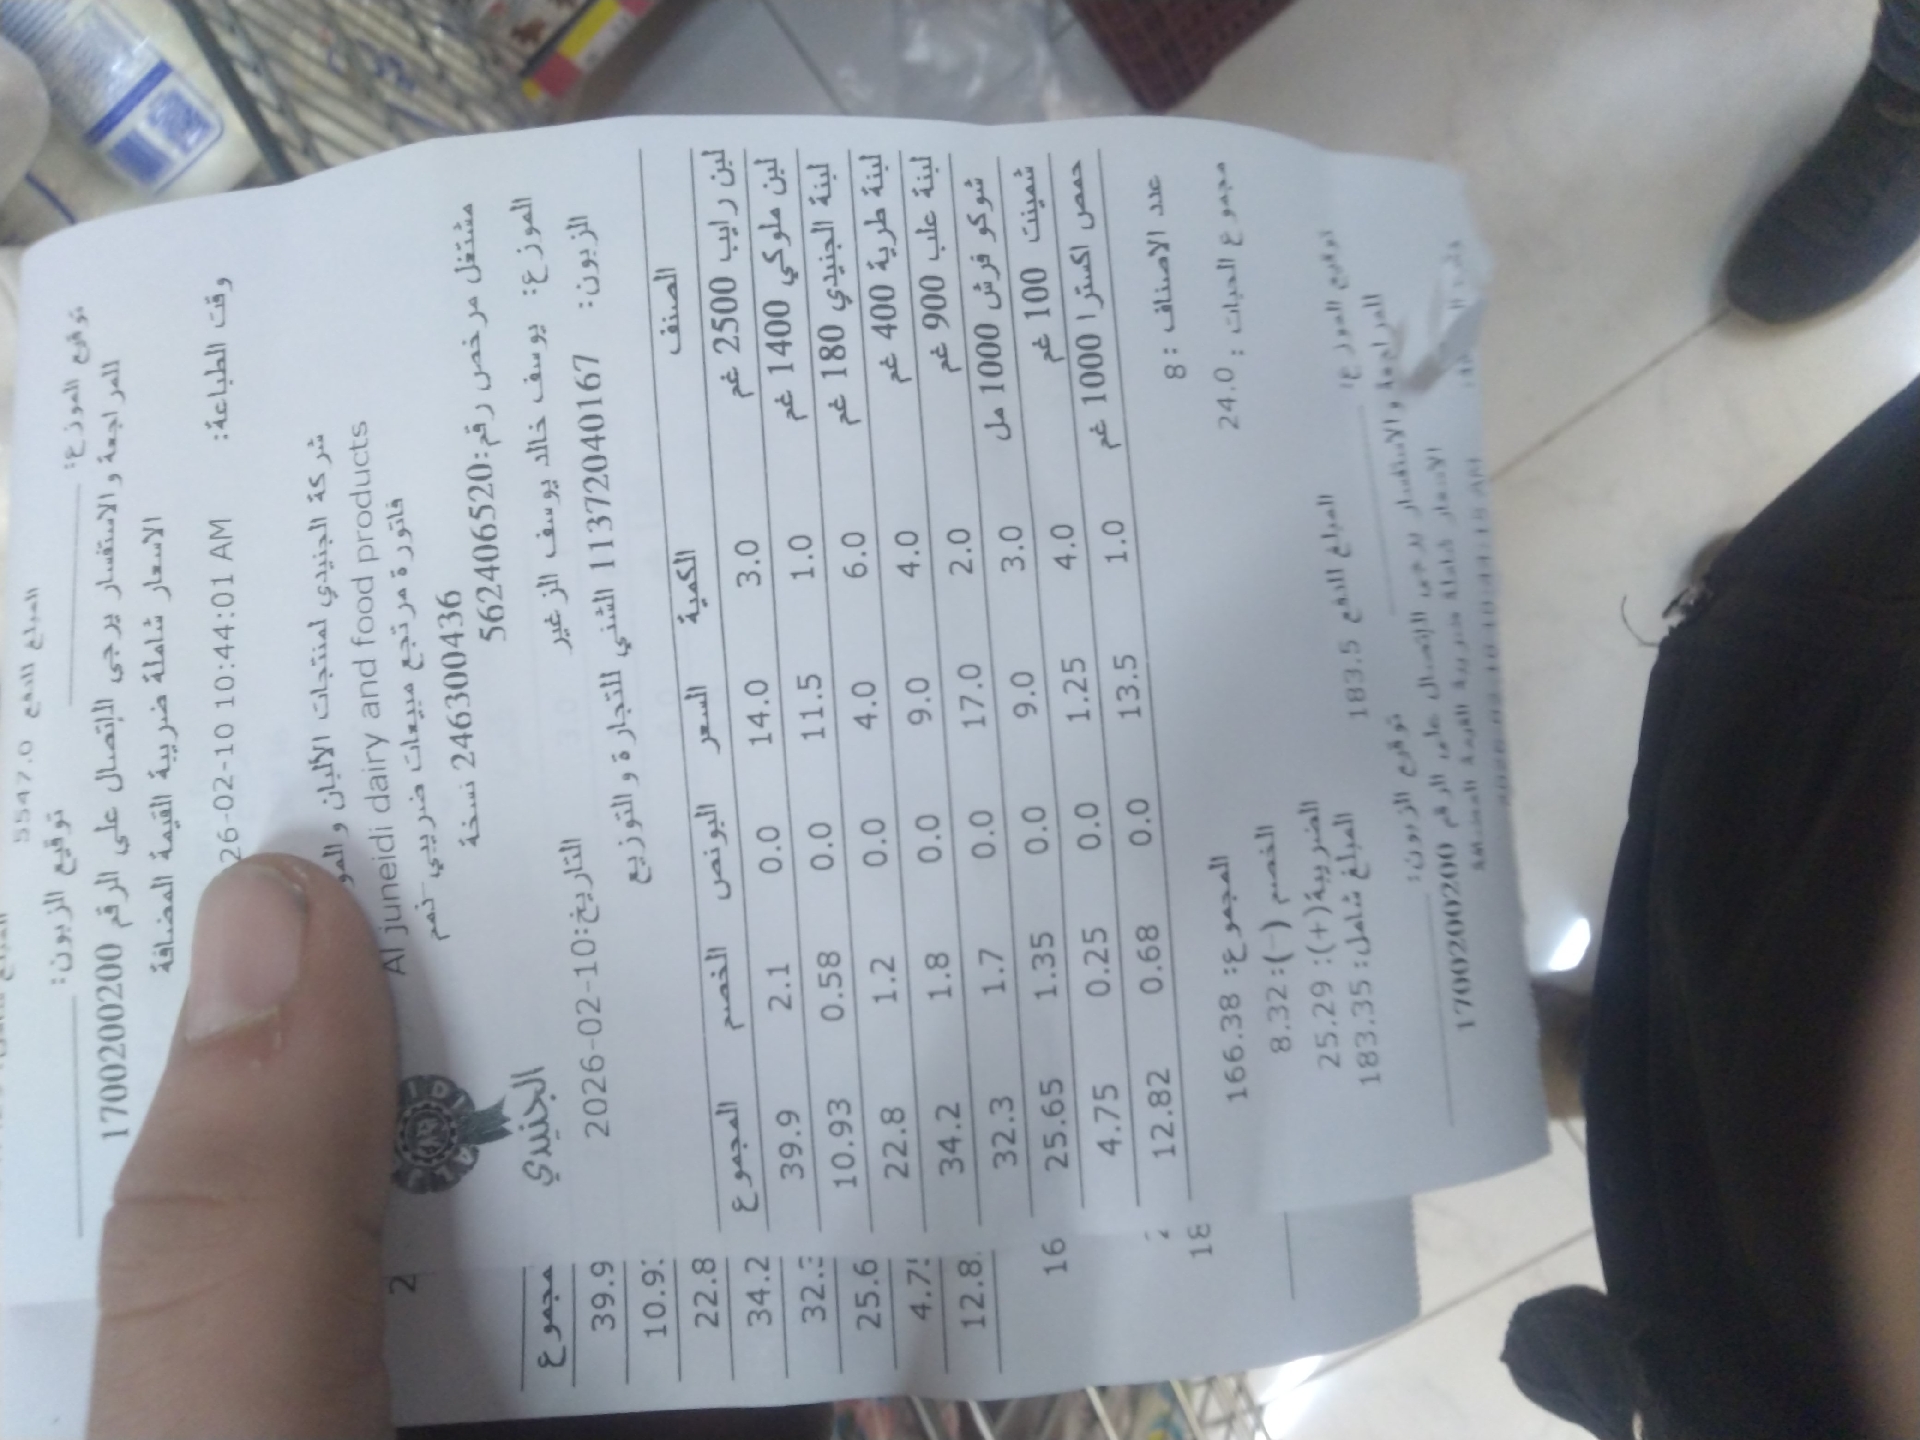 5547.0 المبلغ للدفع
توقيع الموزع:
توقيع الزبون:
للمراجعة والاستفسار يرجى الاتصال على الرقم 1700200200
الاسعار شاملة ضريبة القيمة المضافة
وقت الطباعة:
26-02-10 10:44:01 AM
شركة الجنيدي لمنتجات الالبان و
Al juneidi dairy and food products
فاتورة مرتجع مبيعات ضريبي
246300436 نسخة
مشتغل مرخص رقم:562406520
الجنيدي
الموزع: يوسف خالد يوسف الزغير
التاريخ:2026-02-10
الزبون: 11372040167 الشني للتجارة والتوزيع
الصنف الكمية السعر البونص الخصم المجموع
لبن رايب 2500 غم 3.0 14.0 0.0 2.1 39.9
لبن ملوكي 1400 غم 1.0 11.5 0.0 0.58 10.93
لبنة الجنيدي 180 غم 6.0 4.0 0.0 1.2 22.8
لبنة طرية 400 غم 4.0 9.0 0.0 1.8 34.2
لبنة علب 900 غم 2.0 17.0 0.0 1.7 32.3
شوكو فرش 1000 مل 3.0 9.0 0.0 1.35 25.65
شمينت 100 غم 4.0 1.25 0.0 0.25 4.75
حمص اكسترا 1000 غم 1.0 13.5 0.0 0.68 12.82
عدد الاصناف : 8
مجموع الحبات : 24.0
المجموع: 166.38
الخصم (-): 8.32
الضريبة(+): 25.29
المبلغ شامل: 183.35
المبلغ للدفع 183.5
توقيع الموزع:
توقيع الزبون:
للمراجعة والاستفسار يرجى الاتصال على الرقم 1700200200
الاسعار شاملة ضريبة القيمة المضافة
مجموع
39.9
10.9
22.8
34.2
32.
25.6
4.7
12.8
16
18